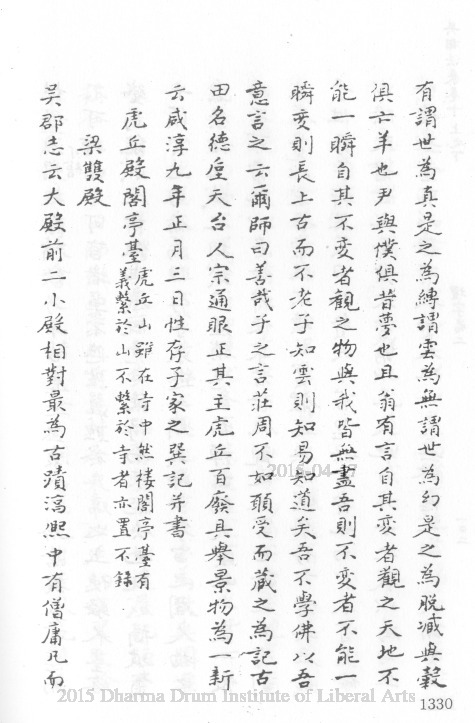 有謂世為真是之為縛謂雲為無謂世為幻是之為脱臧與穀
俱亡羊也尹與僕俱昔夢也且翁有言自其變者觀之天地不
能一瞬自其不變者觀之物與我皆無盡吾則不變者不能一
瞬變則長上古而不老子知雲則知易知道矣吾不學佛以吾
意言之云爾師曰善哉子之言莊周不如願受而蔵之為記古
田名德垕天台人宗通眼正其主虎丘百廢具舉景物為一新
云咸淳九年正月三日性存子家之巽記并書
虎丘殿閣亭臺虎丘山雖在寺中然楼閣亭臺有
義繫於山不繫於寺者亦置不錄
梁雙殿
吴郡志云大殿前二小殿相對最為古蹟淳熙中有僧庸凡而
2015-04-17
2015 Dharma Drum Institute of Liberal Arts
1330